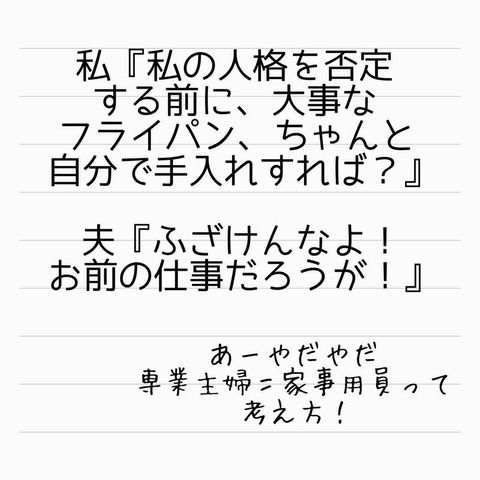 私『私の人格を否定
する前に、大事な
フライパン、ちゃんと
自分で手入れすれば？』
夫『ふざけんなよ！
お前の仕事だろうが！』
あーやだやだ
専業主婦＝家事用員って
考え方！